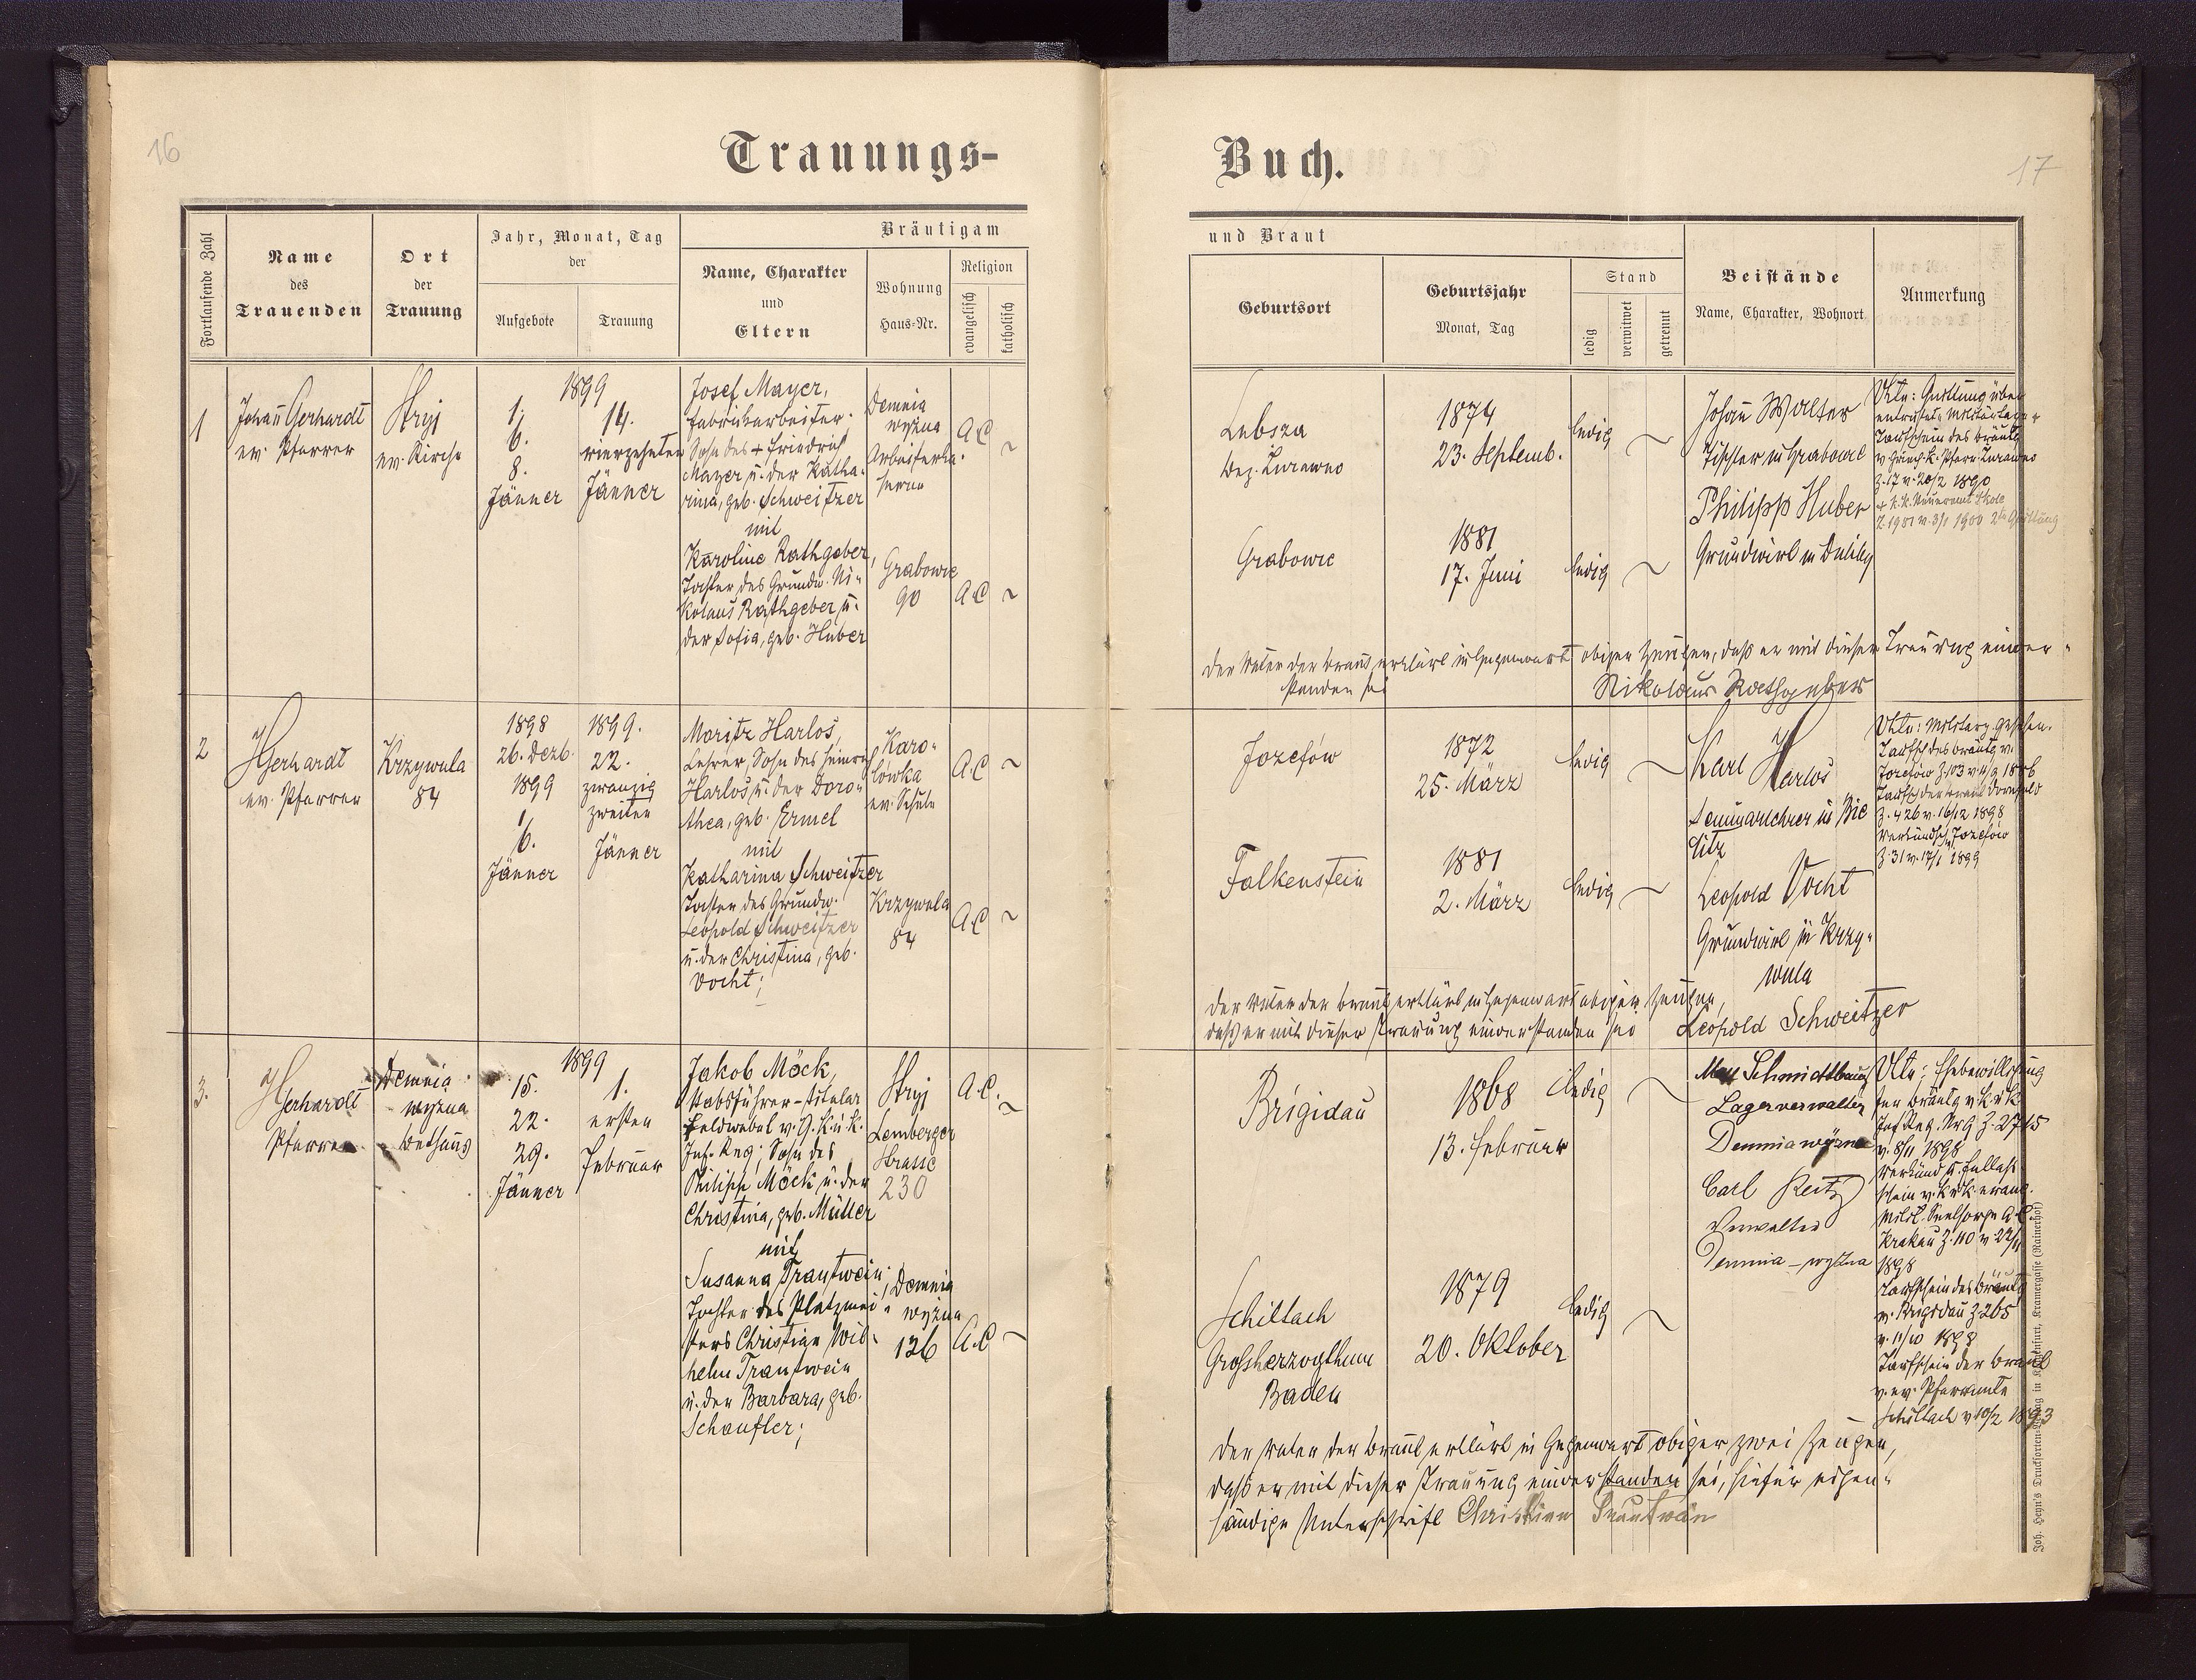 16
Trauungs-
Fortlaufende Zahl
Name
des
Trauenden
Ort
der
Trauung
Jahr, Monat, Tag
der
Aufgebote
Trauung
Bräutigam
Name, Charakter
und
Eltern
Wohnung
Haus-Nr.
Religion
evangelisch
katholisch
1
Johañ Gerhardt
ev. Pfarrer
Stryj
ev. Kirche
1899
1.
6.
8.
Jänner
14.
vierzehnten
Jänner
Josef Mayer,
Fabriksarbeiter.
Sohn des + Friedrich
Mayer u. der Katha-
rina, geb. Schweitzer
mit
Karoline Rathgeber,
Tochter des Grundw. Ni-
kolaus Rathgeber u.
der Sofia, geb. Huber
Demnia
wyżna
Arbeiterka-
serne
A.C.
~
Grabowce
90
A.C
~
2
Gerhardt
ev. Pfarrer
Krzywula
84
1898
26. Dezb.
1899
1/
6.
Jänner
1899.
22.
zwanzig
zweiten
Jänner
Moritz Harlos,
Lehrer, Sohn des Heinrich
Harlos u. der Doro-
thea, geb. Ermel
mit
Katharina Schweitzer
Tochter des Grundw.
Leopold Schweitzer
u. der Christina, geb.
Vocht;
Karo-
lówka
ev. Schule
A.C
~
Krzywula
84
A.C
~
3.
Gerhardt
Pfarrer
Demnia
wyżna
Bethaus
1899
15.
22.
29.
Jänner
1.
ersten
Februar
Jakob Möck,
Stabsführer-titular
Feldwebel v. 9. k. u. k.
Inf. Reg; Sohn des
Philipp Möck u. der
Christina, geb. Müller
mit
Susanna Trautwein,
Tochter des Platzmei-
sters Christian Wil-
helm Trautwein
u. der Barbara, geb.
Schaufler;
Stryj
Lemberger
Strasse
230
A.C.
~
Demnia
wyżna
136
A.C
~
Buch.
17
und Braut
Geburtsort
Geburtsjahr
Monat, Tag
Stand
ledig
verwitwet
getrennt
Beistände
Name, Charakter, Wohnort
Anmerkung
Lubsza
Bez. Żurawno
1874
23. Septemb.
ledig
~
Johañ Walter
Tischler in Grabowce
Philipp Huber
Grundwirt in Duliby
Grabowce
1881
17. Juni
ledig
~
Vktn: Quittung über
entrichtete Militärtaxe
Taufschein des Bräutg
v. griech. k. Pfarre Żurawno
Z. 17 v. 20/2 1890
+ k. k. Steueramt Skole
Z. 1981 v. 3/1 1900 2te Quittung
Der Vater der Braut erklärt in Gegenwart obiger Zeugen, daß er mit dieser Trauung einver-
standen sei
Nikolaus Rathgeber
Jozefów
1872
25. März
ledig
~
Karl Harlos
Seminarlehrer in Bie
litz
Leopold Vocht
Grundwirt in Krzy-
wula
Falkenstein
1881
2. März
ledig
~
Taufsch des Bräutg v.
Jozefów Z. 103 v. 11/9 1886
Taufsch der Braut Dornfeld
Z. 426 v. 16/12 1898
Verkündsch. Jozefów
Z. 31 v. 17/1 1899
Der Vater der Braut erklärt in Gegenwart obiger Zeugen,
daß er mit dieser Trauung einverstanden sei
Leopold Schweitzer
Brigidau
1868
13. Februar
ledig
~
Max Schmidtbauer
Lagerverwalter
Demnia wyżna
Carl Reitz
Verwalter
Demnia-wyżna
Schiltach
Grossherzogthum
Baden
1879
20. Oktober
ledig
~
Vktn: Ehebewilligung
Inf. Reg. Nr 9 Z. 2715
v. 8/11 1898
Verkünd u. Entlass-
schein v. k. u. k. evang.
Milit. Seelsorge A.C.
Krakau Z. 110 v. 22/11
1898
Taufschein des Bräutg
v. Brigidau Z 265
v. 11/10 1898
Taufschein der Braut
v. ev. Pfarramte
Schiltach v. 10/2 1893
Der Vater der Braut erklärt in Gegenwart obiger zwei Zeugen,
daß er mit dieser Trauung einverstanden sei, hiefür eigen-
händige Unterschrift Christian Trautwein
Joh. Heyn's Drucksorten-Verlag in Klagenfurt, Kramergasse (Rainerhof)